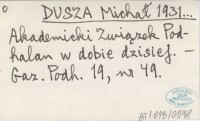 DUSZA Michał 1931...
Akademicki Związek Pod-
halan w dobie dzisiej. —
Gaz. Podh. 19, nr 49.